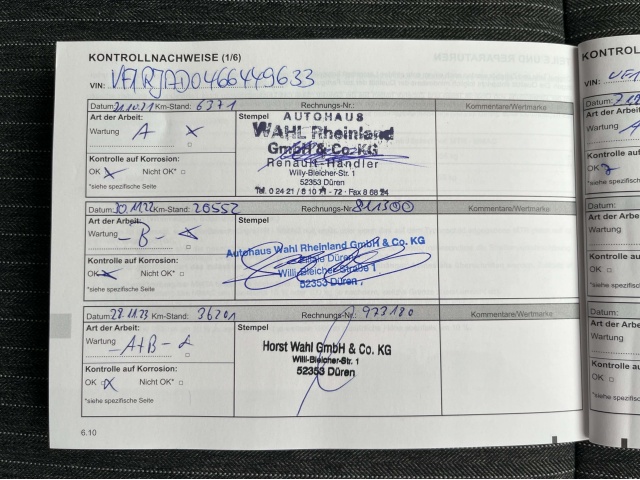 KONTROLLNACHWEISE (1/6)
VIN: VF1RJAD0466449633
Datum: 21.10.21 Km-Stand: 6371 Rechnungs-Nr.: Kommentare/Wertmarke
Art der Arbeit: Stempel
Wartung A x
Kontrolle auf Korrosion:
OK x Nicht OK* □
*siehe spezifische Seite
AUTOHAUS
WAHL Rheinland
GmbH & Co. KG
Renault-Händler
Willy-Bleicher-Str. 1
52353 Düren
Datum: 30.11.22 Km-Stand: 20552 Rechnungs-Nr.: 811300 Kommentare/Wertmarke
Art der Arbeit: Stempel
Wartung -B- x
Kontrolle auf Korrosion:
OK x Nicht OK* □
*siehe spezifische Seite
Autohaus Wahl Rheinland GmbH & Co. KG
Filiale Düren
Willi-Bleicher-Straße 1
52353 Düren
Datum: 28.11.23 Km-Stand: 36201 Rechnungs-Nr.: 973180 Kommentare/Wertmarke
Art der Arbeit: Stempel
Wartung -A+B- x
Kontrolle auf Korrosion:
OK x Nicht OK* □
*siehe spezifische Seite
Horst Wahl GmbH & Co. KG
Willi-Bleicher-Str. 1
52353 Düren
6.10
KONTROL
VIN: VF1
Datum:
Art der Arbeit
Wartung
Kontrolle au
OK
*siehe spezifisc
Datum:
Art der Arbei
Wartung
Kontrolle au
OK □
*siehe spezifisc
Datum:
Art der Arbe
Wartung
Kontrolle a
OK □
*siehe spezifis